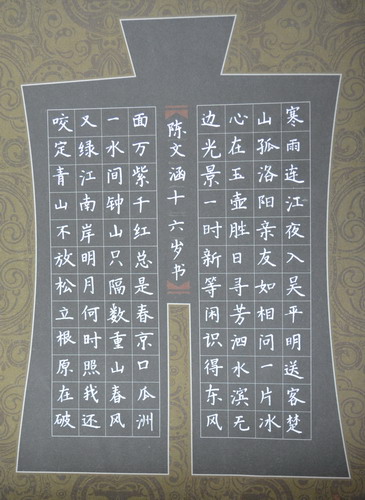 寒雨连江夜入吴平明送客楚
山孤洛阳亲友如相问一片冰
心在玉壶胜日寻芳泗水滨无
边光景一时新等闲识得东风
陈文涵十六岁书
面万紫千红总是春京口瓜洲
一水间钟山只隔数重山春风
又绿江南岸明月何时照我还
咬定青山不放松立根原在破